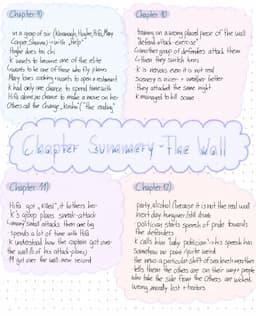 Chapter 9)
in a group of six (Kavanagh, Hughe, Hifa, Mary
Cooper, Sharma) → with "Help"
Hughe does his
K wants to become one of the elite
wants to be one of those who fly planes
Mary loves cooking → wants to open a restaurant
K had only one chance to spend time with
Hifa alone, no chance to make a move on her
Others call the Change "the ending"
Chapter 10)
training on a wrong placed piece of the wall
"defend-attack-exercise"
(another group of defenders attack them
then they switch turns
K is nervous even it is not real
scenery is nicer + weather better
they attacked the same night
K managed to kill some
Chapter Summary - The Wall
Chapter 11)
Hifa got "killed", it bothers her
K's group plans sneak-attack
many small attacks, then one big
spends a lot of time with Hifa
K understand how the captain got over
the wall (b of his attack-plans)
M got over the wall now record
Chapter 12)
party, alcohol (because it is not the real wall
next day hungover/still drunk
politician starts speech of pride towards
the defenders
K calls him "baby politician" → his speech has
somehow no point/quite weird
tells them the others are on their way + people
who take the side from the Others are wicked
wrong, morally lost + traitors